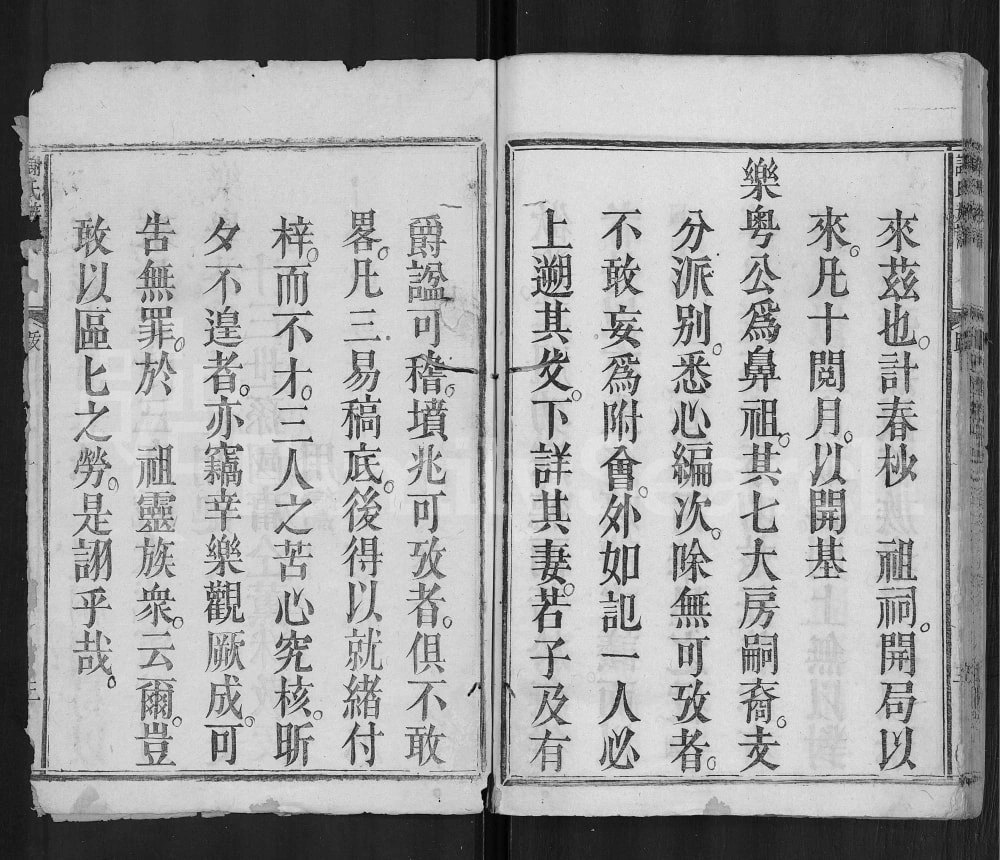 來茲也。計春杪　祖祠。開局以
來。凡十閱月。以開基
樂粤公爲鼻祖。其七大房嗣裔。支
分派別。悉心編次。除無可攷者。
不敢妄爲附會。外如記一人必
上遡其父。下詳其妻。若子及有
爵諡可稽。墳兆可攷者。俱不敢
畧。凡三易稿底。後得以就緒付
梓。而不才。三人之苦心究核。昕
夕不遑者。亦竊幸樂觀厥成。可
吿無罪。於　祖靈族衆。云爾。豈
敢以區匕之勞。是詡乎哉。
謝氏